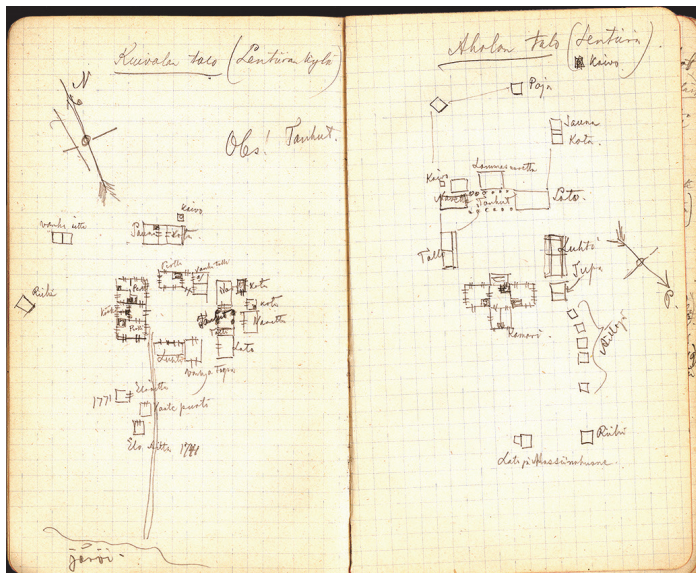 Kuivalan talo (Lentiiran kylä)
N
Obs! Tanhut.
Kaivo
Sauna Kota
Riihi
Pirtti
Pirtti
Kota
Kota
Navetta
Talli
Lato
Luhti
Vanha Tupa
1771
Vaate puoti
järvi
Aholan talo (Lentiira)
Kaivo
Paja
Sauna
Kota.
Lammasnavetta
Kaivo
Navetta
Tanhut
Lato.
Talli
Luhti
Tupa
Kamari
Aittoja
Riihi
Lato ja Massiinahuone